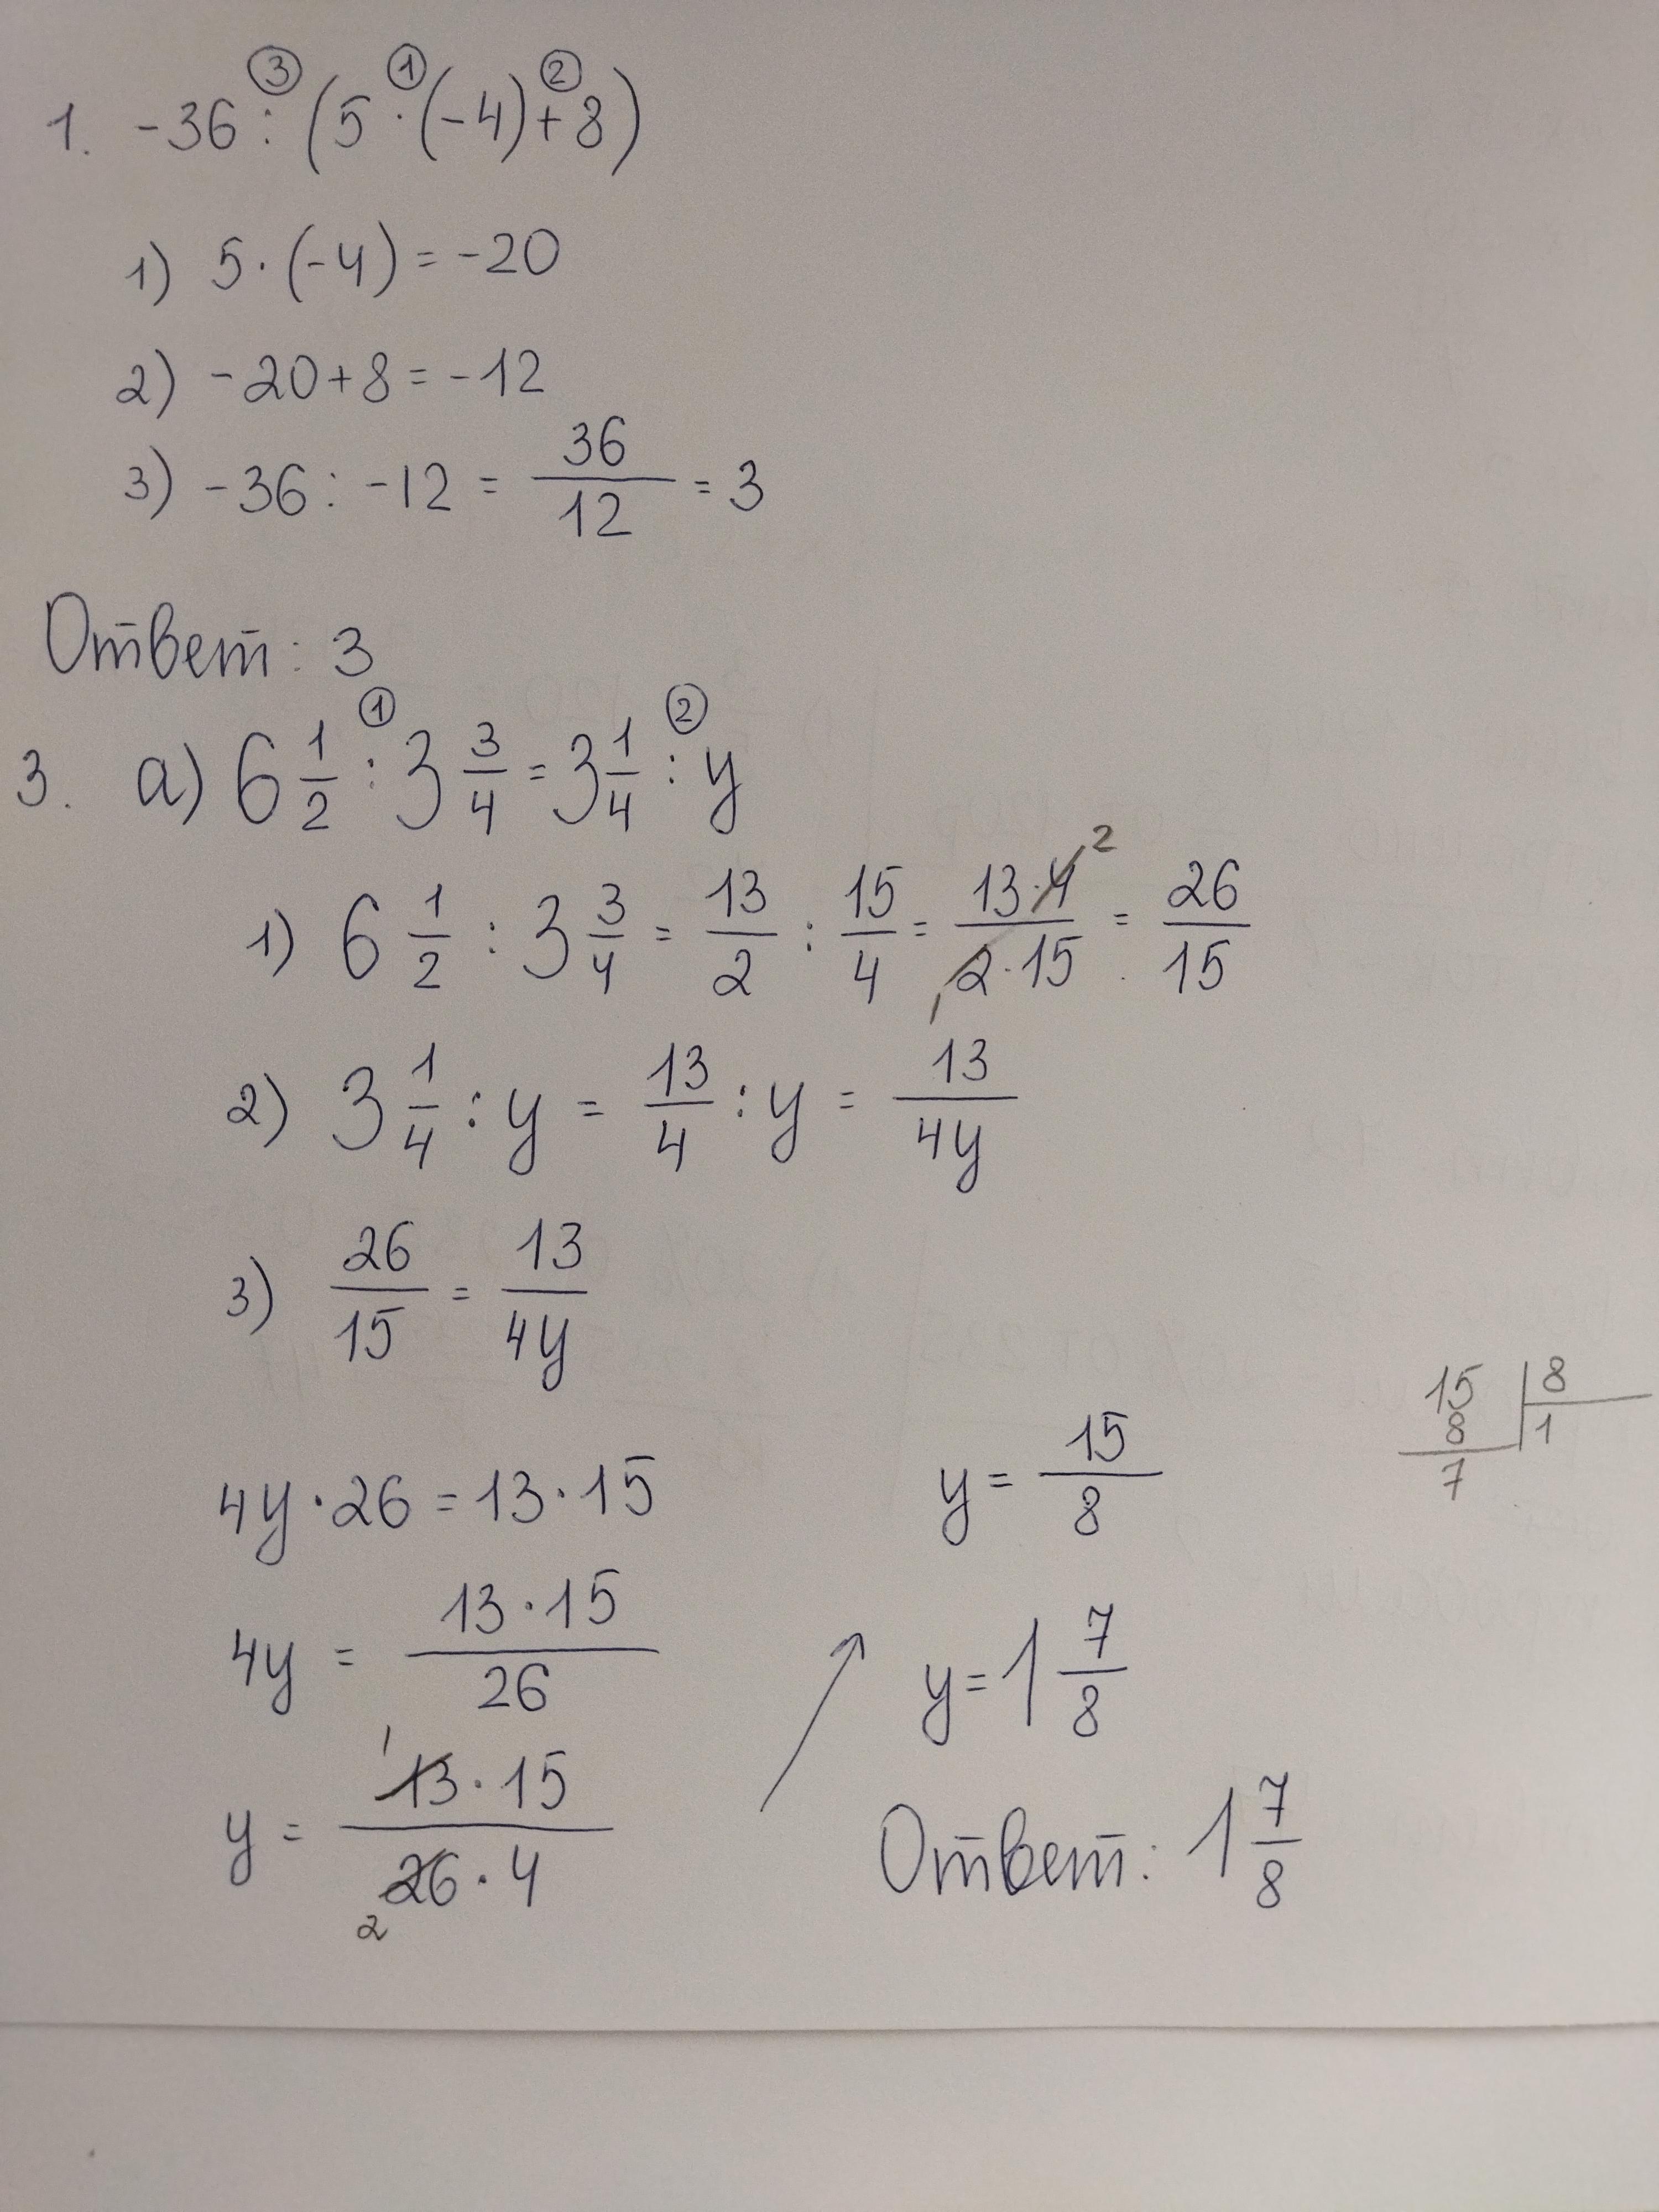 ③ ① ②
1. -36 : (5 · (-4) + 8)
1) 5 · (-4) = -20
2) -20 + 8 = -12
3) -36 : -12 = 36/12 = 3
Ответ: 3
① ②
3. а) 6 1/2 : 3 3/4 = 3 1/4 : y
1) 6 1/2 : 3 3/4 = 13/2 : 15/4 = 13·4 2/1 2·15 = 26/15
2) 3 1/4 : y = 13/4 : y = 13/4y
3) 26/15 = 13/4y
4y · 26 = 13 · 15
4y = 13 · 15/26
y = 1 13 · 15/2 26 · 4
y = 15/8
15 | 8
8 | 1
7
y = 1 7/8
Ответ: 1 7/8